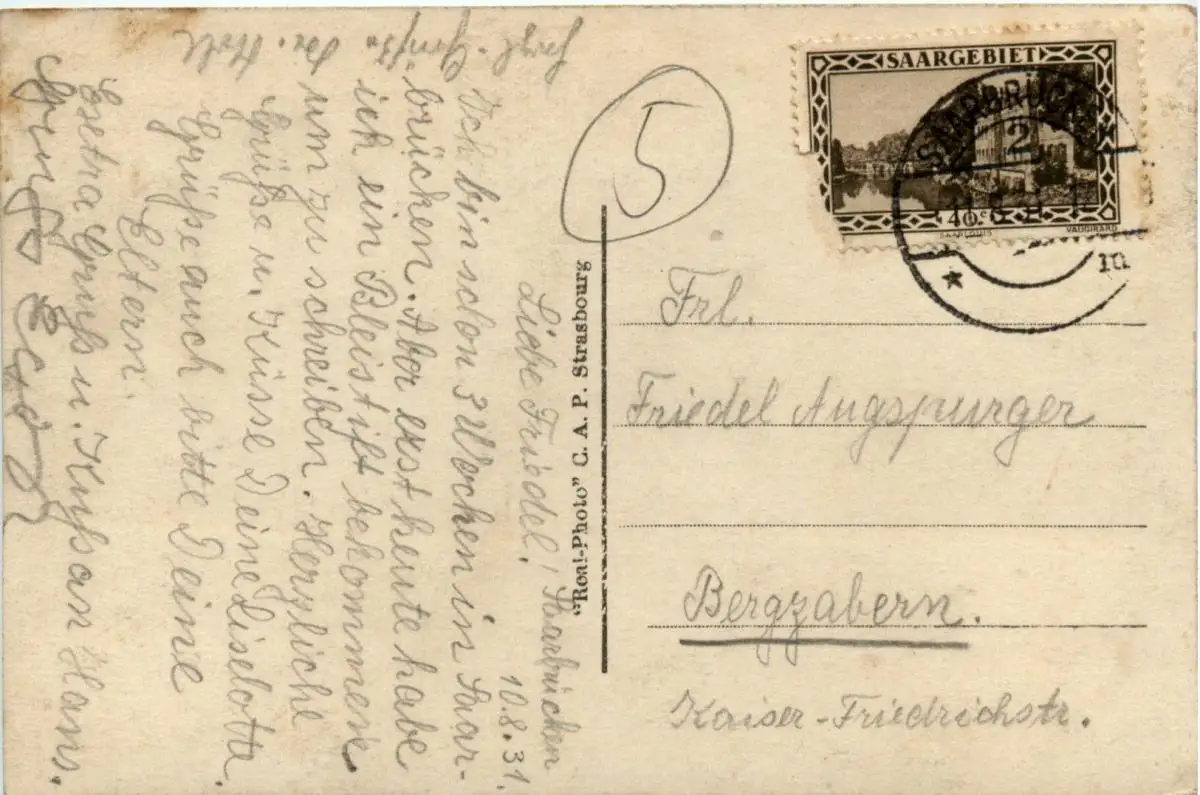 Saarbrücken
10.8.31.
Liebe Friedel!
Ich bin schon 3 Wochen in Saar-
brücken. Aber erst heute habe
ich ein Bleistift bekommen
um zu schreiben. Herzliche
Grüße u. Küsse Deine Liselotte.
Grüße auch bitte Deine
Eltern.
Extra Gruß u. Kuß an Hans.
"Real-Photo" C. A. P. Strasbourg
5
SAARGEBIET
40 c
VAUGIRARD
SAARBRÜCKEN
2
Frl.
Friedel Augspurger
Bergzabern.
Kaiser-Friedrichstr.